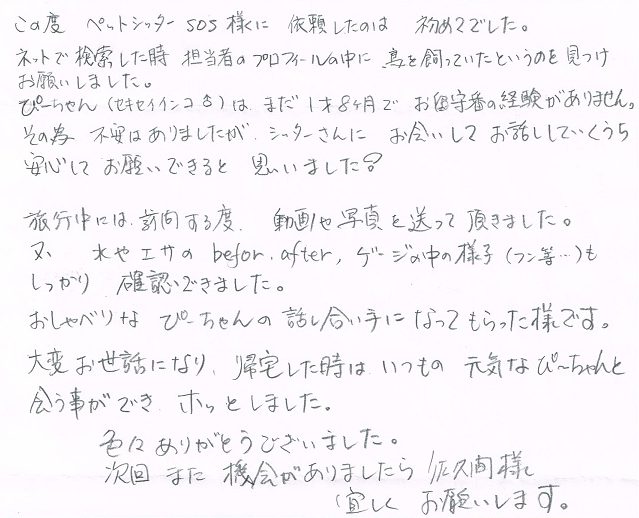 この度 ペットシッターSOS様に 依頼したのは 初めてでした。
ネットで検索した時 担当者のプロフィールの中に 鳥を飼っていたというのを見つけ
お願いしました。
ぴーちゃん(セキセイインコ♂)は、まだ1才8ヶ月で お留守番の経験がありません。
その為 不安はありましたが、シッターさんに お会いして お話ししていくうち
安心して お願いできると 思いました?
旅行中には、訪問する度、動画や写真を送って頂きました。
又 水やエサの befor.after, ゲージの中の様子(フン等…)も
しっかり 確認できました。
おしゃべりな ぴーちゃんの 話し合い手になってもらった様です。
大変お世話になり、帰宅した時は いつもの 元気なぴ〜ちゃんと
会う事ができ ホッとしました。
色々ありがとうございました。
次回 また 機会がありましたら 佐久間様
宜しく お願いします。